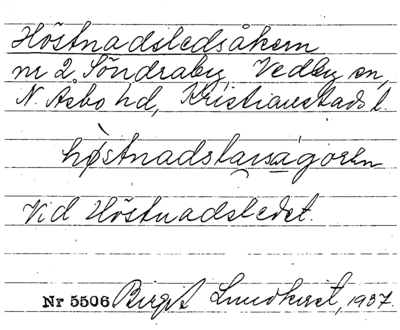 Höstnadsledsåkern
nr 2, Söndraby, Vedby sn,
N. Åsbo hd, Kristianstads l.
Vid Höstnadsledet.
Nr 5506 Birgit Lundkvist, 1937.